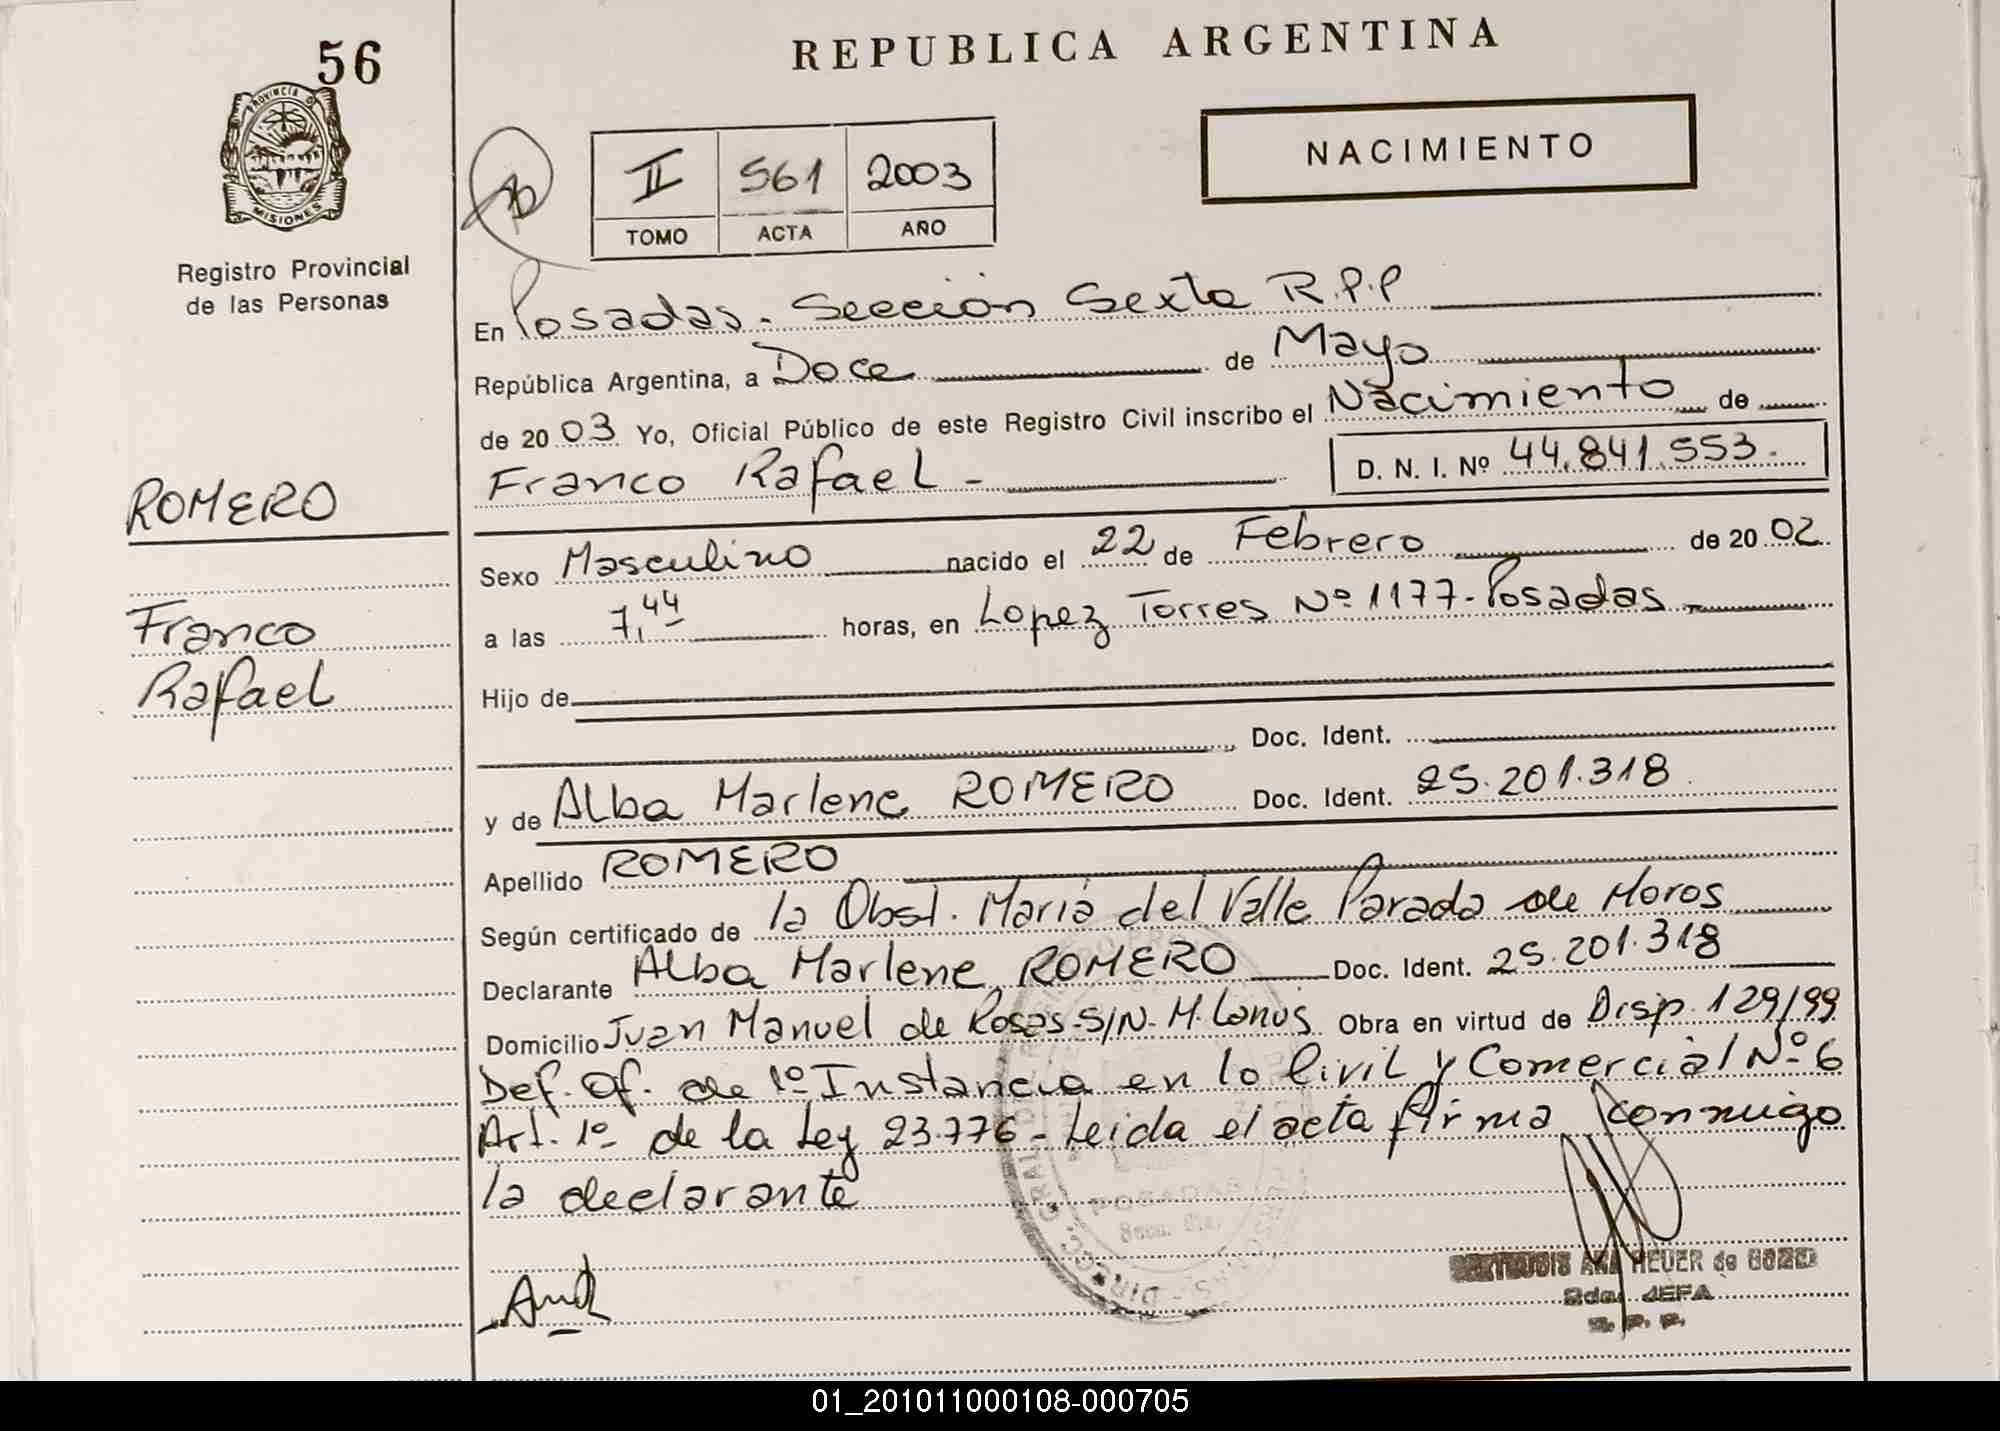 56
REPUBLICA ARGENTINA
PROVINCIA DE
MISIONES
Registro Provincial
de las Personas
II 561 2003
TOMO ACTA AÑO
NACIMIENTO
En Posadas. Sección Sexta R.P.P
República Argentina, a Doce de Mayo
de 2003 Yo, Oficial Público de este Registro Civil inscribo el Nacimiento de
Franco Rafael - D. N. I. Nº 44.841.553.
ROMERO
Franco
Rafael
Sexo Masculino nacido el 22 de Febrero de 2002.
a las 7,44 horas, en Lopez Torres Nº 1177-Posadas
Hijo de
Doc. Ident.
y de Alba Marlene ROMERO Doc. Ident. 25.201.318
Apellido ROMERO
Según certificado de la Obst. María del Valle Parada de Moros
Declarante Alba Marlene ROMERO Doc. Ident. 25.201.318
Domicilio Juan Manuel de Rosas-S/N-M.Lanús Obra en virtud de Disp. 129/99
Def. Of. de 1º Instancia en lo Civil y Comercial Nº 6
Art. 1º de la Ley 23.776 - Leida el acta firma conmigo
la declarante
POSADAS
HEUER de
2da. JEFA
R. P. P.
01_201011000108-000705